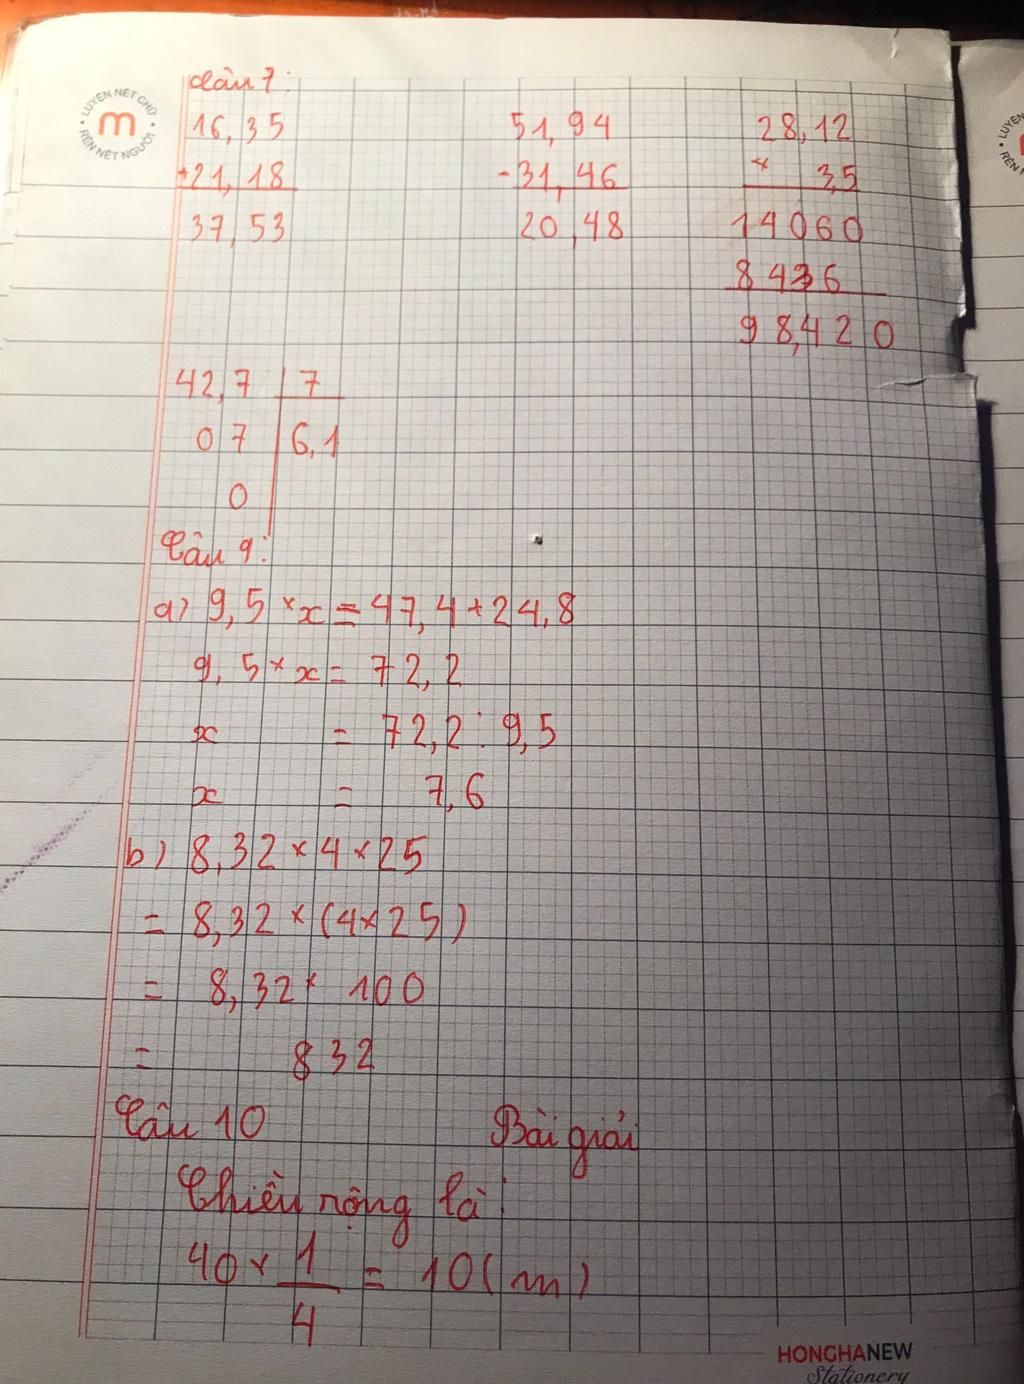 Câu 7:
LUYỆN NÉT CHỮ
RÈN NẾT NGƯỜI
16,35
+21,18
37,53
51,94
-31,46
20,48
28,12
× 3,5
14060
8436
98,420
42,7 7
07 6,1
0
Câu 9:
a) 9,5 × x = 47,4 + 24,8
9,5 × x = 72,2
x = 72,2 : 9,5
x = 7,6
b) 8,32 × 4 × 25
= 8,32 × (4 × 25)
= 8,32 × 100
= 832
Câu 10 Bài giải
Chiều rộng là:
40 × 1/4 = 10 (m)
HONGHANEW
Stationery